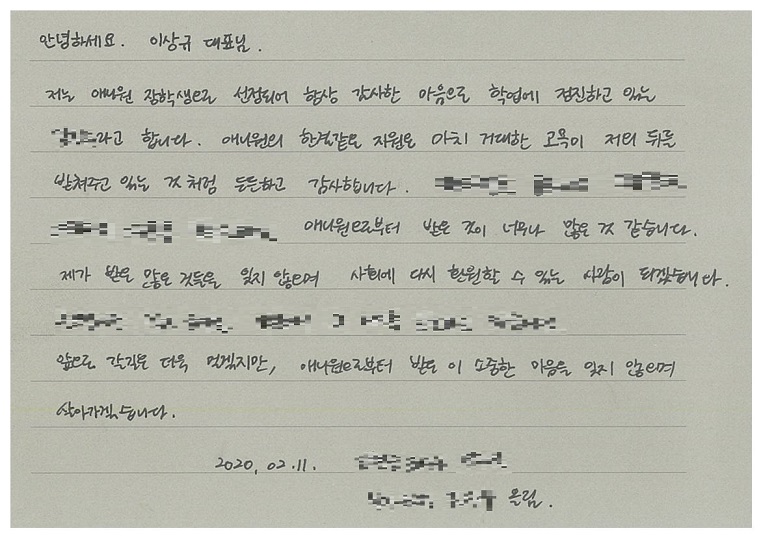 안녕하세요. 이상규 대표님.
저는 애나원 장학생으로 선정되어 항상 감사한 마음으로 학업에 정진하고 있는
라고 합니다. 애나원의 한결같은 지원은 마치 거대한 고목이 저의 뒤를
받쳐주고 있는 것 처럼 든든하고 감사합니다.
애나원으로부터 받은 것이 너무나 많은 것 같습니다.
제가 받은 많은 것들을 잊지 않으며 사회에 다시 환원할 수 있는 사람이 되겠습니다.
앞으로 갈길은 더욱 멀겠지만, 애나원으로부터 받은 이 소중한 마음을 잊지 않으며
살아가겠습니다.
2020. 02. 11.
올림.